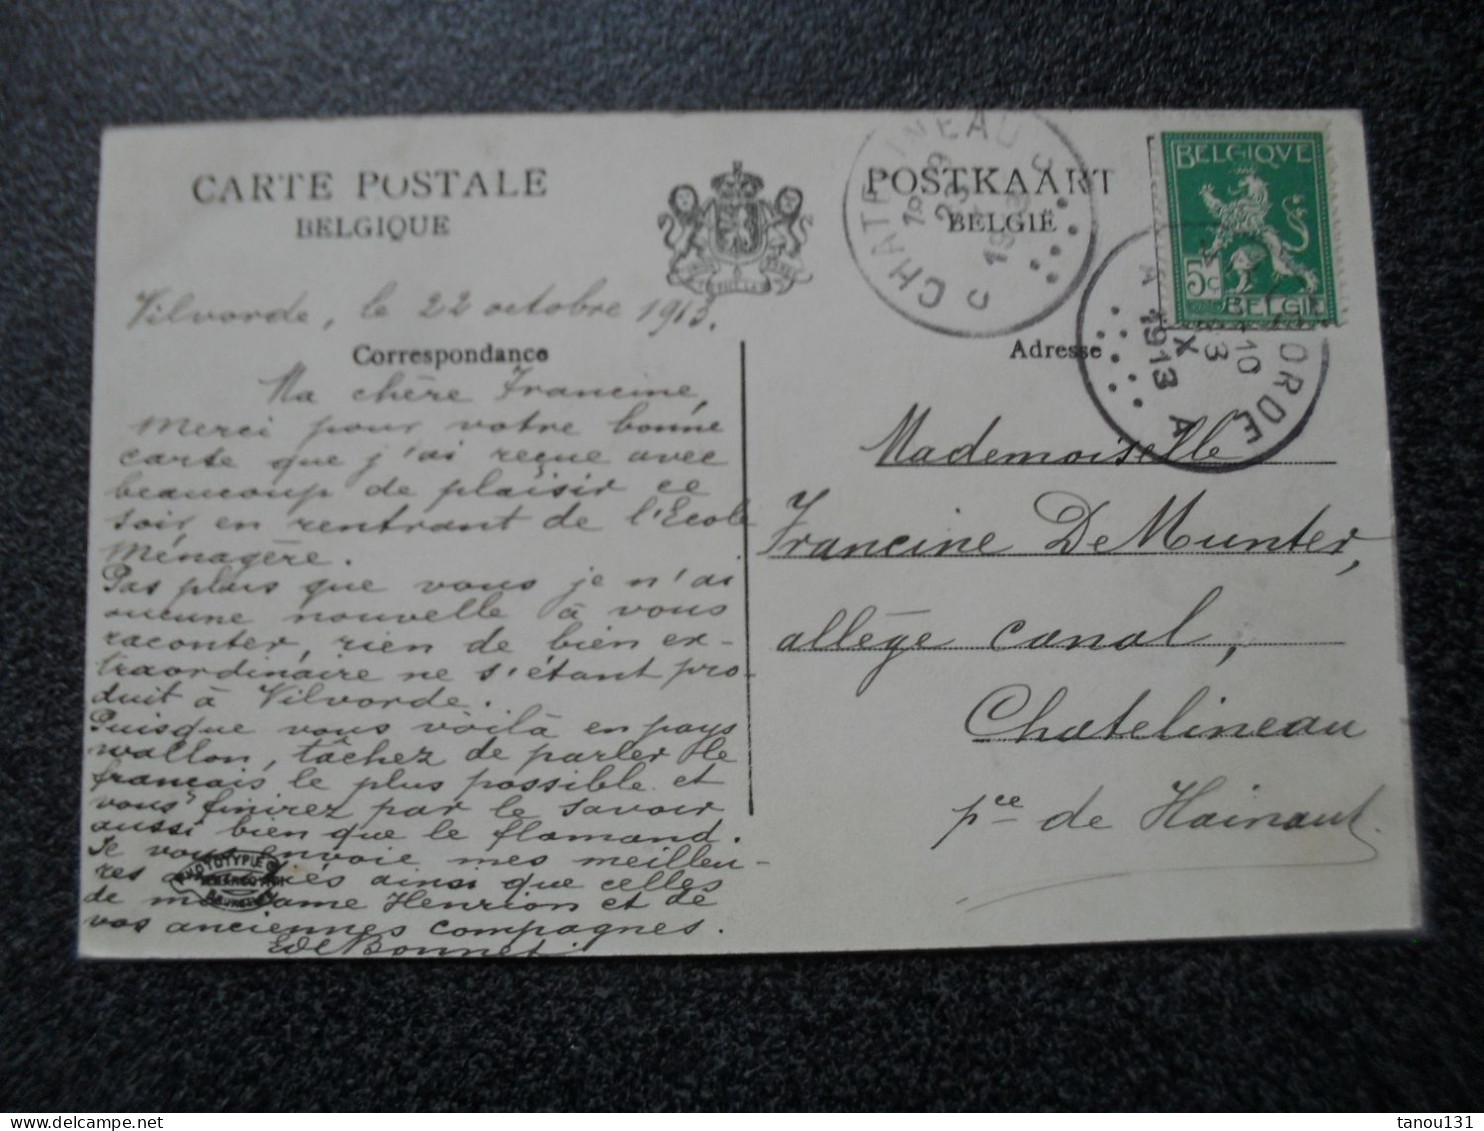 CARTE POSTALE
BELGIQUE
POSTKAART
BELGIË
CHATELINEAU
BELGIQVE
5c
BELGIE
1913
Vilvorde, le 22 octobre 1913.
Correspondance
Adresse
Ma chère Francine,
Merci pour votre bonne
carte que j'ai reçue avec
beaucoup de plaisir ce
soir, en rentrant de l'Ecole
Ménagère.
Pas plus que vous je n'ai
aucune nouvelle à vous
raconter, rien de bien ex-
traordinaire ne s'étant pro-
duit à Vilvorde.
Puisque vous voilà en pays
wallon, tâchez de parler le
français le plus possible et
vous finirez par le savoir
aussi bien que le flamand.
Je vous envoie mes meilleu-
res amitiés ainsi que celles
de madame Henrion et de
vos anciennes compagnes.
Mademoiselle
Francine De Munter,
allège canal,
Chatelineau
pce de Hainaut.
tanou131